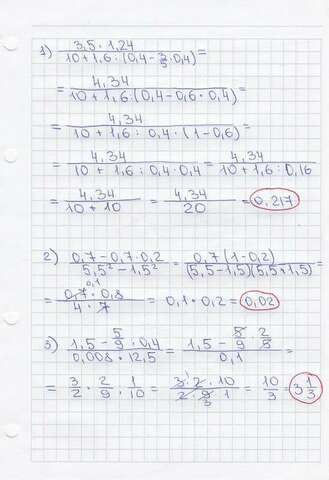 1) \frac{3,5 · 1,24}{10 + 1,6 : (0,4 - \frac{3}{5} · 0,4)} =
= \frac{4,34}{10 + 1,6 : (0,4 - 0,6 · 0,4)} =
= \frac{4,34}{10 + 1,6 : 0,4 · (1 - 0,6)} =
= \frac{4,34}{10 + 1,6 : 0,4 · 0,4} = \frac{4,34}{10 + 1,6 : 0,16} =
= \frac{4,34}{10 + 10} = \frac{4,34}{20} = 0,217
2) \frac{0,7 - 0,7 · 0,2}{5,5² - 1,5²} = \frac{0,7 (1 - 0,2)}{(5,5 - 1,5)(5,5 + 1,5)} =
= \frac{0,7 · 0,8}{4 · 7} = 0,1 · 0,2 = 0,02
3) \frac{1,5 - \frac{5}{9} : 0,4}{0,008 · 12,5} = \frac{1,5 - \frac{5}{9} \frac{2}{5}}{0,1} =
= \frac{3}{2} · \frac{2}{9} : \frac{1}{10} = \frac{3 · 2 · 10}{2 · 9 · 1} = \frac{10}{3} = 3 \frac{1}{3}